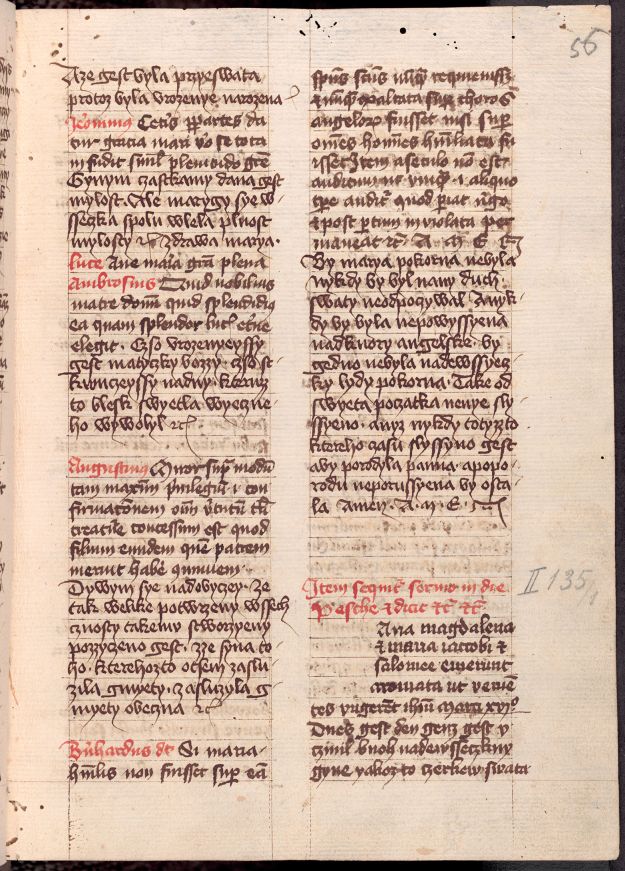 56
Aze gest byla przyeswata
protoz byla vrozenye narozena
Ieronimus Ceteris per partes da
tur gracia marie vero se tota
infudit simul plenitudo gracie
Gynym zastkamy dana gest
mylost Ale marygy sye w
sseczka spolu wlela plnost
mylosty etc Zdrawa marya.
luce Aue maria gracia plena
Ambrosius Quid nobilius
matre domini quid splendidio
ea quam splendor lucis eterne
elegit. Czso vrozenyeyssy
gest matyczky bozzy. czso st
kwuczeyssy nadny. kteruz
to blesk swyetla wyeczne
ho wywolyl etc
Augustinus Miror super modum
tam maximum priuilegium et con
firmationem omnium virtutum tali
creature concessum est quod
filium eundem quem patrem
meruit habere
Dywym sye nadobyczey. ze
tak welike potwrzeny wssech
cznosty takemu stworzyeny
pozzyczeno gest. zze syna to
ho. kterehozto otcem zaslu
zila gmyety. zasluzyla g
myety obeczna etc
Bernhardus dicit Si maria
humilis non fuisset super eam
spiritus sanctus nunquam requieuisset
et nunquam exaltata super choros
angelorum fuisset nisi super
omnes homines humiliata fu
isset Item a seculo non est
auditum nec vnquam in aliquo
tempore auditur quod pariat virgo
et post partum inviolata per
maneat etc A M E N
By marya pokorna nebyla
nykdy by byl nany duch
swaty neodpoczywal Anyk
dy by byla nepowyssyena
nadkuory angelske. by
gedno nebyla nadewssyecz
ky lydy pokorna. Take od
swyeta poczatka nenye sly
ssyeno. anyz nykdy totyzto
ktereho zasu slyssyno gest
aby porodyla panna. apopo
rodu neporussyena by osta
la Amen. A. M. E. N
Item sequitur sermo in die
Pesche et dicit etc etc
II 135/1
Aria magdalena
et maria iacobi et
salomee emerunt
aromata ut venien
tes vngerent ihesum Marci xvi°
Dnes gest den genz gest v
czinil buoh nadewsseczkny
gyne yakoz to czerkew swata